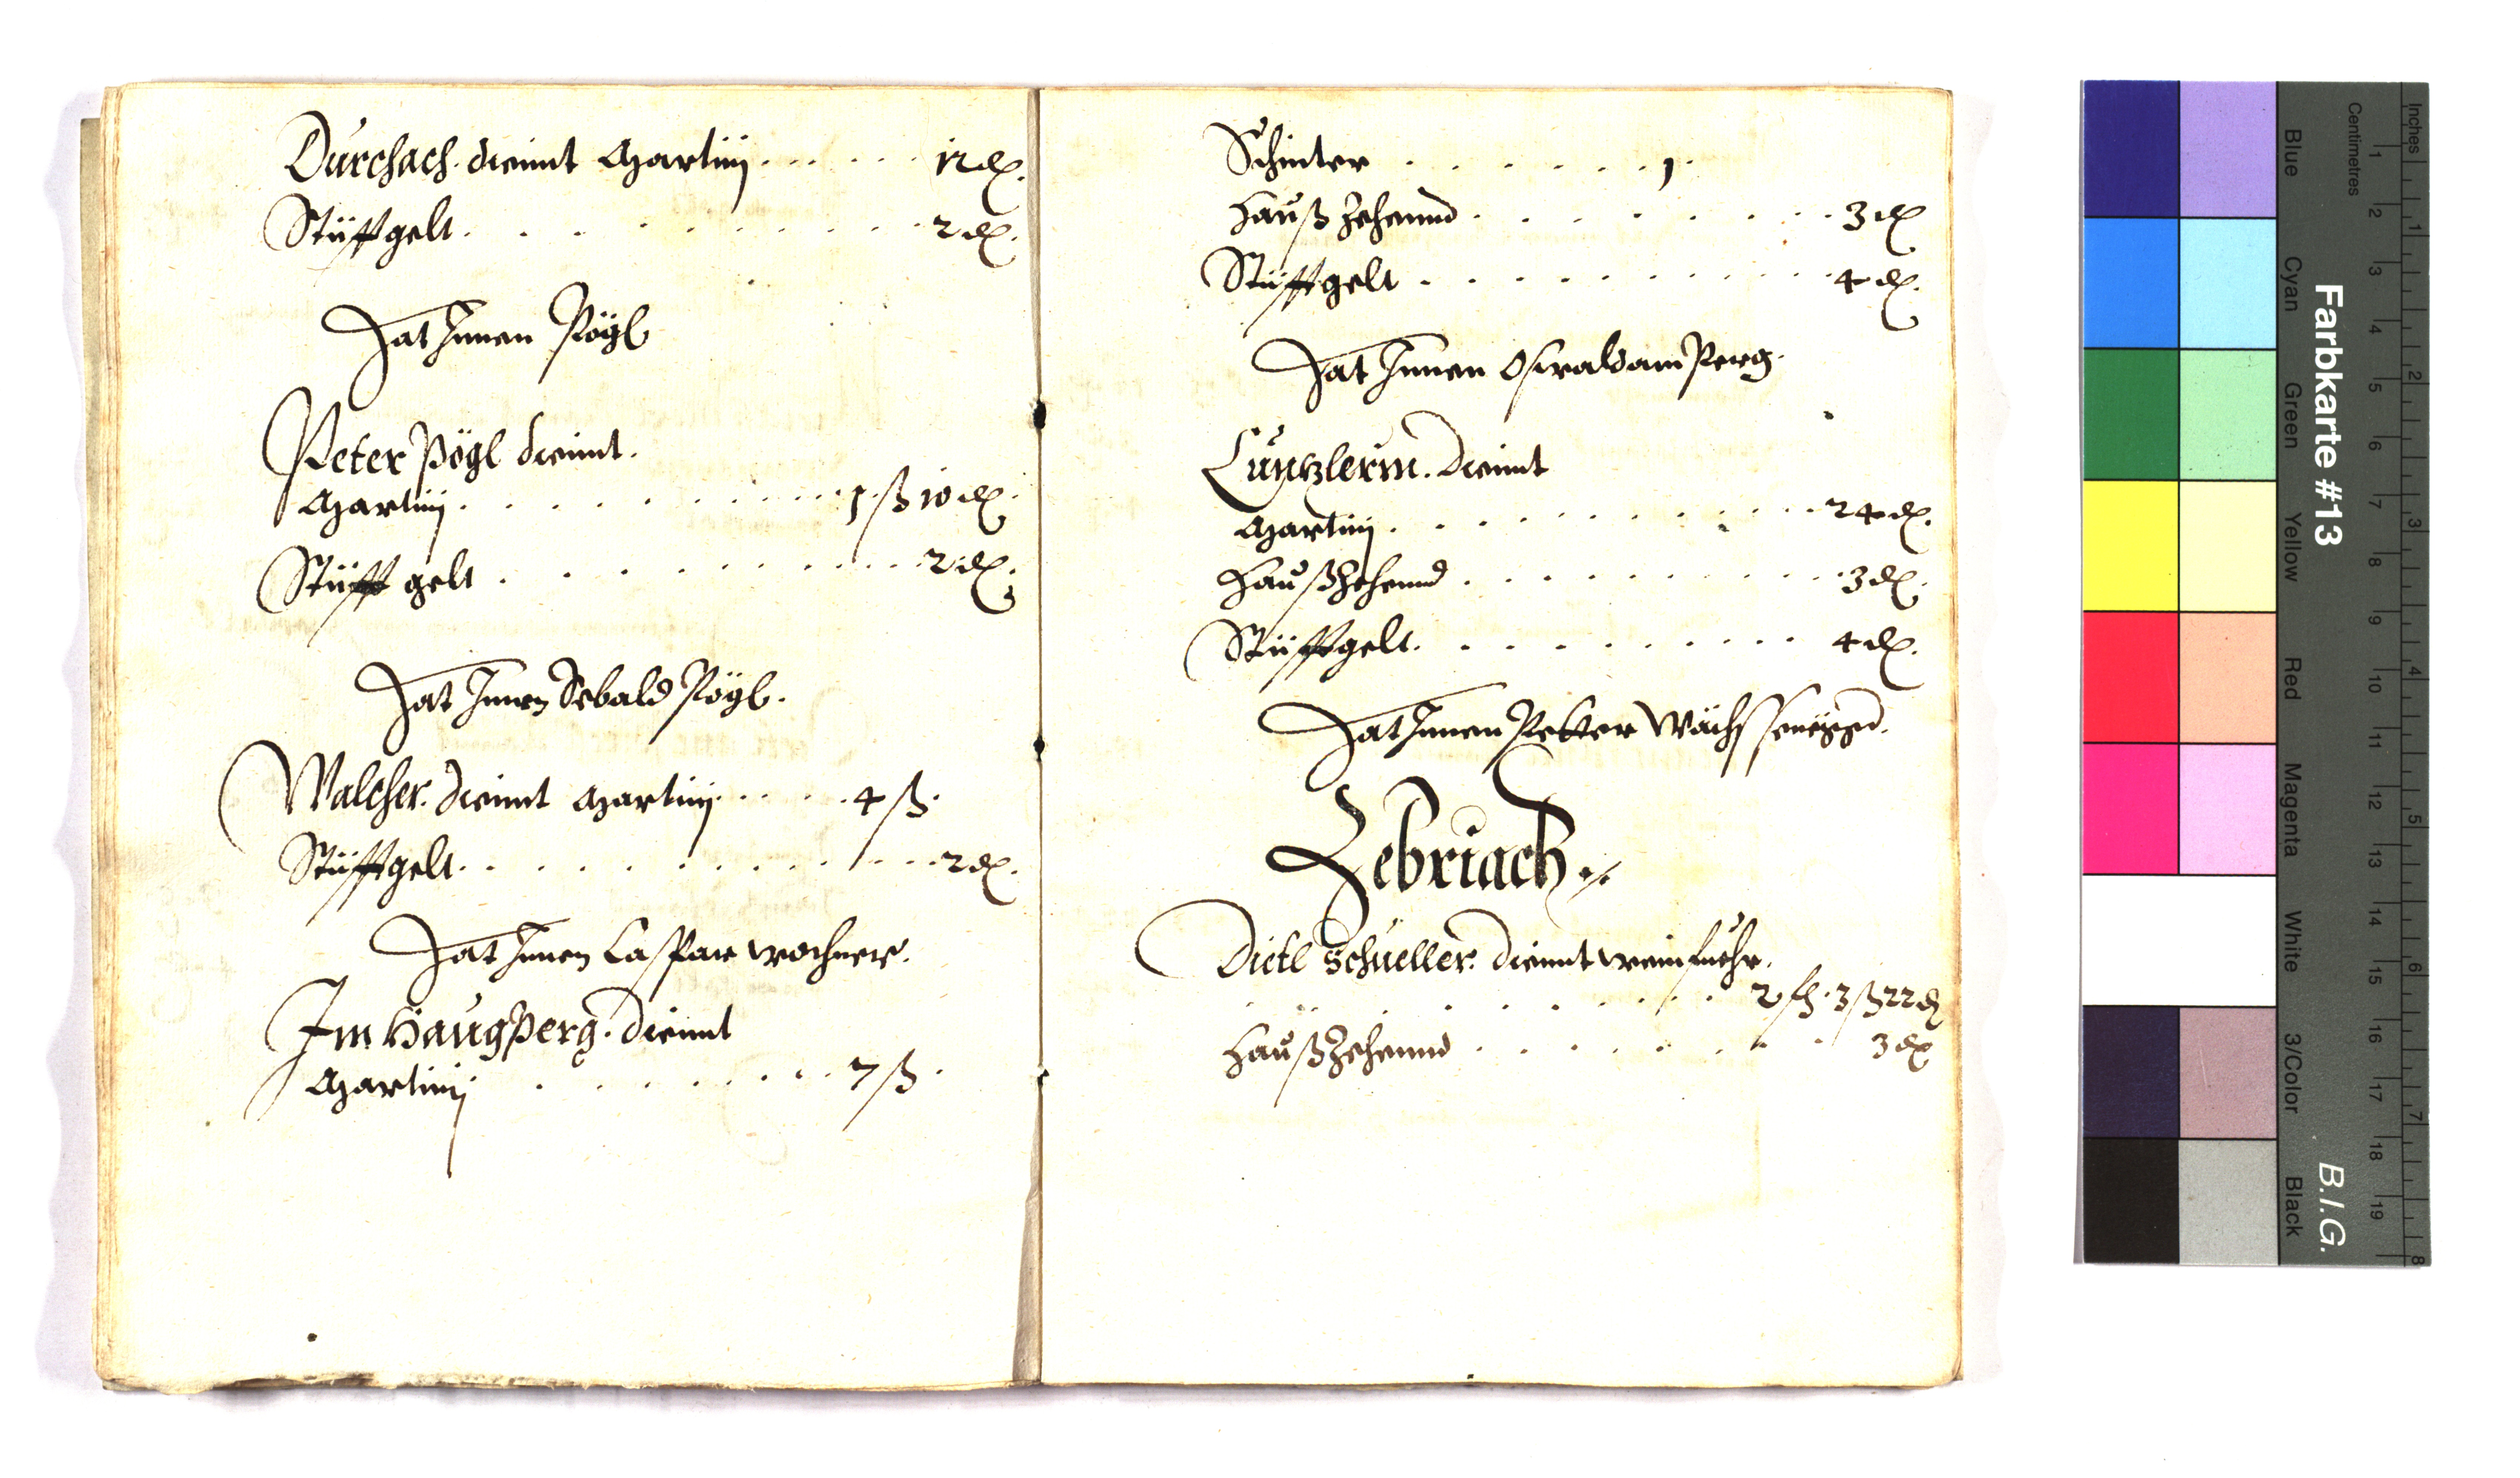 Durchach. diennt Martinj . . . . . . 12 ₰.
Stüfftgelt . . . . . . . . . 2 ₰.
Hat Innen Pögl
Peter Pögl diennt.
Martinj . . . . . . . . . 1 ß 10 ₰.
Stüfft gelt . . . . . . . . . 2 ₰.
Hat Innen Sebald Pögl.
Walcher. diennt Martinj . . . . . 4 ß.
Stüfftgelt . . . . . . . . . 2 ₰.
Hat Innen Caspar Wochner.
Im Haugperg. diennt
Martinj . . . . . . . 7 ß.
Schintter . . . . . . . 1.
Hauß Zehennd . . . . . . . 3 ₰
Stüfftgelt . . . . . . . . . 4 ₰.
Hat Innen Oswald am Perg.
dienntt
Martinj . . . . . . . . . 24 ₰.
HaußZehennd . . . . . . . . . 3 ₰.
Stüfftgelt . . . . . . . . . 4 ₰.
Hat Innen Petter
Zebriach
Dietl Schueller. dienntt weinfuehr.
. . . . . . . . . 2 . 3 ß 22 ₰
HaußZehennd . . . . . . . 3 ₰
Farbkarte #13
B.I.G.
Blue
Cyan
Green
Yellow
Red
Magenta
White
3/Color
Black
Centimetres
1 2 3 4 5 6 7 8 9 10 11 12 13 14 15 16 17 18 19
Inches
1 2 3 4 5 6 7 8